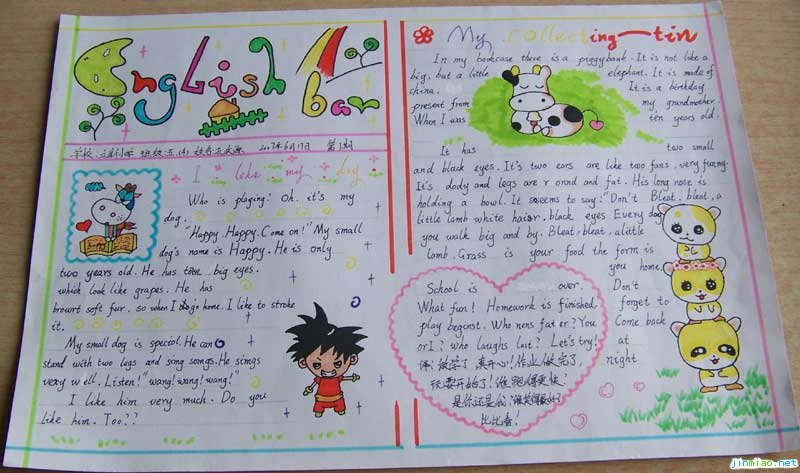 English bar
2017年6月17日 第1期
I like my dog
Who is playing? Oh. it's my
dog.
"Happy. Happy. Come on!" My small
dog's name is Happy. He is only
two years old. He has two big eyes.
which look like grapes. He has
brownt soft fur. so when I go in home. I like to stroke
it.
My small dog is special. He can
stand with two legs and sing songs. He sings
very well. Listen! "wang! wang! wang!"
I like him very much. Do you
like him. Too??
Happy
My collecting-tin
In my bookcase there is a piggybank. It is not like a
big. but a little elephant. It is made of
china. It is a birthday
present from my grandmother.
When I was ten years old.
It has two small
and black eyes. It's two ears are like two fans, very funny.
It's dody and legs are r onnd and fat. His long nose is
holding a bowl. It seems to say: "Don't Bleat, bleat, a
little lamb white hair. black eyes Every day
you walk big and by. Bleat, bleat, alittle
lomb. Grass is your food the form is
you home.
Don't
forget to
Come back
at
night
School is over.
What fun! Homework is finished,
play beginst. Who runs faster? You
or I? Who laughs last? Let's try!
放学了 真开心! 作业做完了,
玩耍开始了! 谁跑得更快?
是你还是我? 谁笑得最好?
比比看.
jinmiao.net